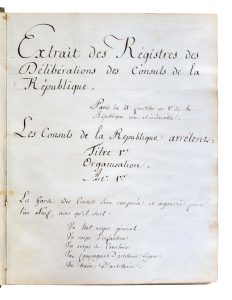 Extrait des Régistres des
Déliberations des Consuls de la
République.
Paris le 21 frimaire an 8e de la
République une et indivisible.
Les Consuls de la République arrêtent:
Titre 1er
Organisation.
Art. 1er
La Garde des Consuls sera composée et organisée pour
l'an neuf, ainsi qu'il suit:
Un Etat major général
Un corps d'infanterie
Un corps de Cavalerie
Une Compagnie d'artillerie légère
Un train d'artillerie.